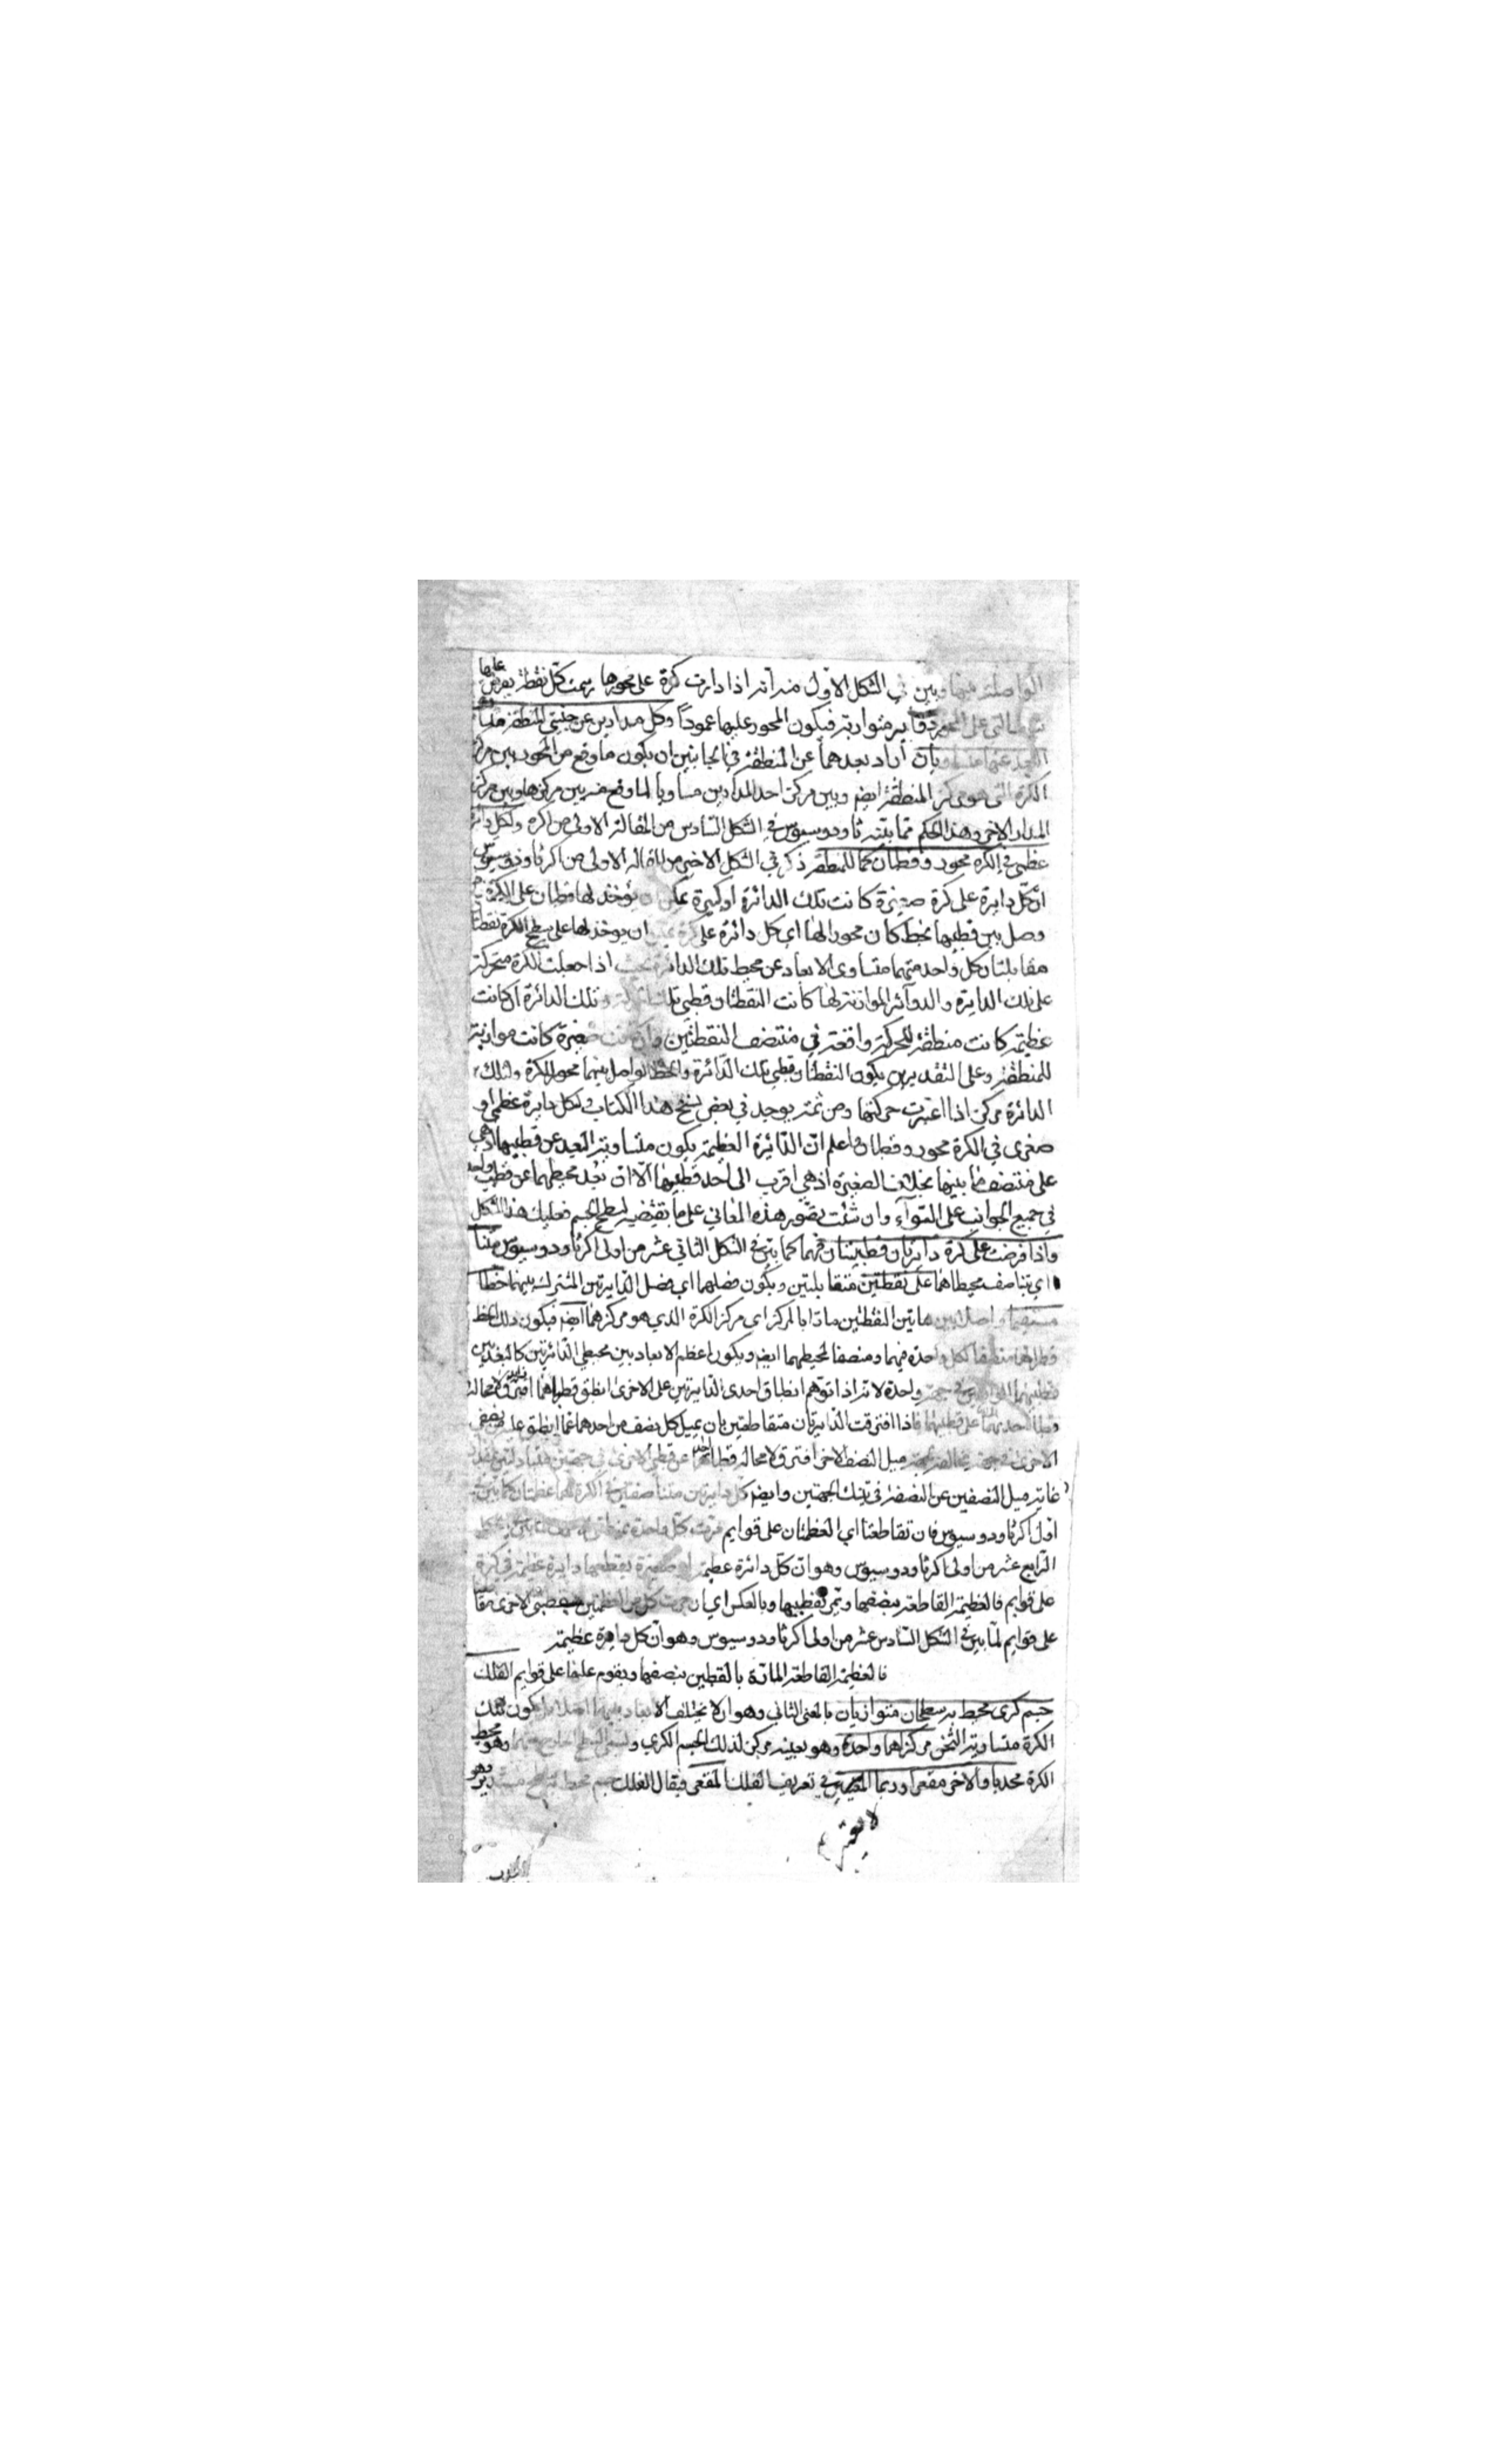 الواصلة بينهما وبين في الشكل الاول منه انه اذا دارت كرة على محورها رسمت كل نقطة يفرض عليها
دوائر متوازية فيكون المحور عليها عمودا وكل مدارين عن جنبتي المنطقة
البعد عنها متساويان اراد ببعدهما عن المنطقة في الجانبين ان يكون ما وقع من المحور بين مركز
الكرة الذي هو مركز المنطقة ايضا وبين مركز احد المدارين مساويا لما وقع منه بين مركزها وبين مركز
المدار الاخر وهذا الحكم مما بينه ثاوذوسيوس في الشكل السادس من المقالة الاولى من اكره ولكل دائرة
عظمى في الكرة محور وقطبان كما للمنطقة ذكر في الشكل الاخير من المقالة الاولى من اكر ثاوذوسيوس
ان كل دايرة على كرة صغيرة كانت تلك الدائرة او كبيرة يمكن ان يؤخذ لها قطبان على الكرة
وصل بين قطبيها بخط كان محورا لها اي كل دائرة على كرة يمكن ان يوخذ لها على سطح الكرة نقطتا
متقابلتان كل واحد منهما متساوى الابعاد عن محيط تلك الدائرة بحيث اذا جعلت الكرة متحركة
على تلك الدايرة والدوائر الموازية لها كانت النقطتان قطبي تلك الحركة وتلك الدائرة ان كانت
عظيمة كانت منطقة للحركة واقعة في منتصف النقطتين وان كانت صغيرة كانت موازية
للمنطقة وعلى التقديرين يكون النقطتان قطبي تلك الدائرة والخط الواصل بينهما محور الكرة ولتلك
الدائرة مركز اذا اعتبرت حركتها ومن ثمة يوجد في بعض نسخ هذا الكتاب ولكل دايرة عظمى او
صغرى في الكرة محور وقطبان واعلم ان الدائرة العظيمة يكون متساوية البعد عن قطبيها اذ هي
على منتصف ما بينهما بخلاف الصغيرة اذ هي اقرب الى احد قطبيها الا ان بعد محيطهما عن قطب واحد
في جميع الجوانب على السواء وان شئت تصور هذه المعاني على ما يقتضيه سطح الجسم فعليك هذا الشكل
واذا فرضت على كرة دايرتان عظيمتان فهما كما بين في الشكل الثاني عشر من اولى اكر ثاوذوسيوس
اي يتناصف محيطاهما على نقطتين متقابلتين ويكون فصلهما اي فصل الدايرتين المشترك بينهما خطا
مستقيما واصلا بين هاتين النقطتين مارا بالمركز اي مركز الكرة الذي هو مركزهما ايضا فيكون ذلك الخط
قطرا لهما منصفا لكل واحدة منهما ومنصفا لمحيطهما ايضا ويكون اعظم الابعاد بين محيطي الدائرتين كالبعد بين
قطبيهما في جهة واحدة لانه اذا توهم انطباق احدى الدايرتين على الاخرى انطبق قطباهما
على قطبيها فاذا افترقت الدايرتان متقاطعتين بان يميل كل نصف من احدهما عما انطبق عليه من نصفي
الاخرى في جهة مخالفة لجهة ميل النصف الاخر افترق لا محالة قطبا عن قطبي الاخرى في جهتين
غاية ميل النصفين عن النصفين في تينك الجهتين وايضا كل دايرتين متناصفتين في الكرة فهما عظيمتان كما بين في
اولى اكر ثاوذوسيوس فان تقاطعتا اي العظيمتان على قوايم مرت كل واحدة
الرابع عشر من اولى اكر ثاوذوسيوس وهو ان كل دائرة عظيمة او صغيرة يقطعها دايرة عظيمة في كرة
على قوايم فالعظيمة القاطعة ينصفها وتمر بقطبيها وبالعكس اي ان مرت كل من العظيمتين بقطبي الاخرى
على قوايم لما بين في الشكل السادس عشر من اولى اكر ثاوذوسيوس وهو ان كل دايرة عظيمة
فالعظيمة القاطعة المارة بالقطبين ينصفها ويقوم عليها على قوايم الفلك
جسم كرى محيط به سطحان متوازيان بالمعنى الثاني وهو ان لا يختلف الابعاد بينهما اصلا فيكون تلك
الكرة متساوية الثخن مركزاهما واحد وهو بعينه مركز لذلك الجسم الكري ويسمى السطح الخارج منهما وهو محيط
الكرة محدبا والاخر مقعرا وربما في تعريف الفلك المقعر فيقال الفلك جسم محيط به سطح مستدير وهو
لا يعتبر